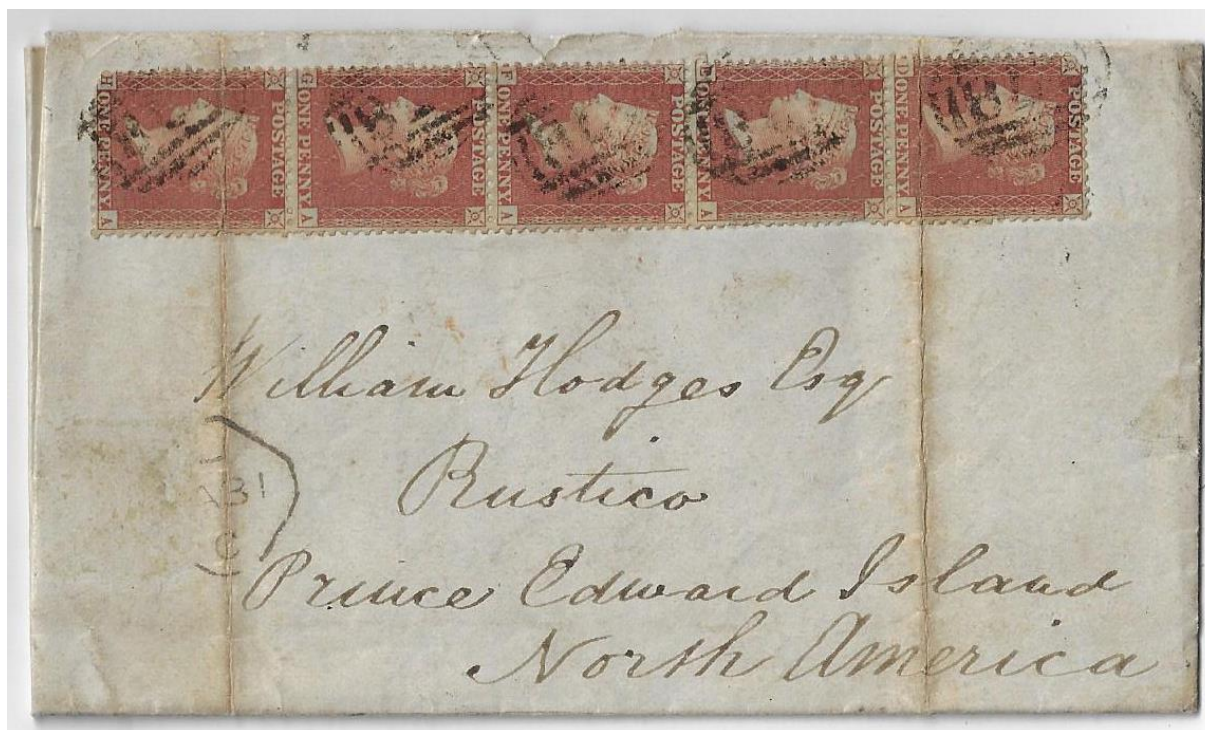 H ONE PENNY A POSTAGE
G ONE PENNY A POSTAGE
F ONE PENNY A POSTAGE
E ONE PENNY A POSTAGE
D ONE PENNY A POSTAGE
William Hodges Esq
Rustico
Prince Edward Island
North America
C